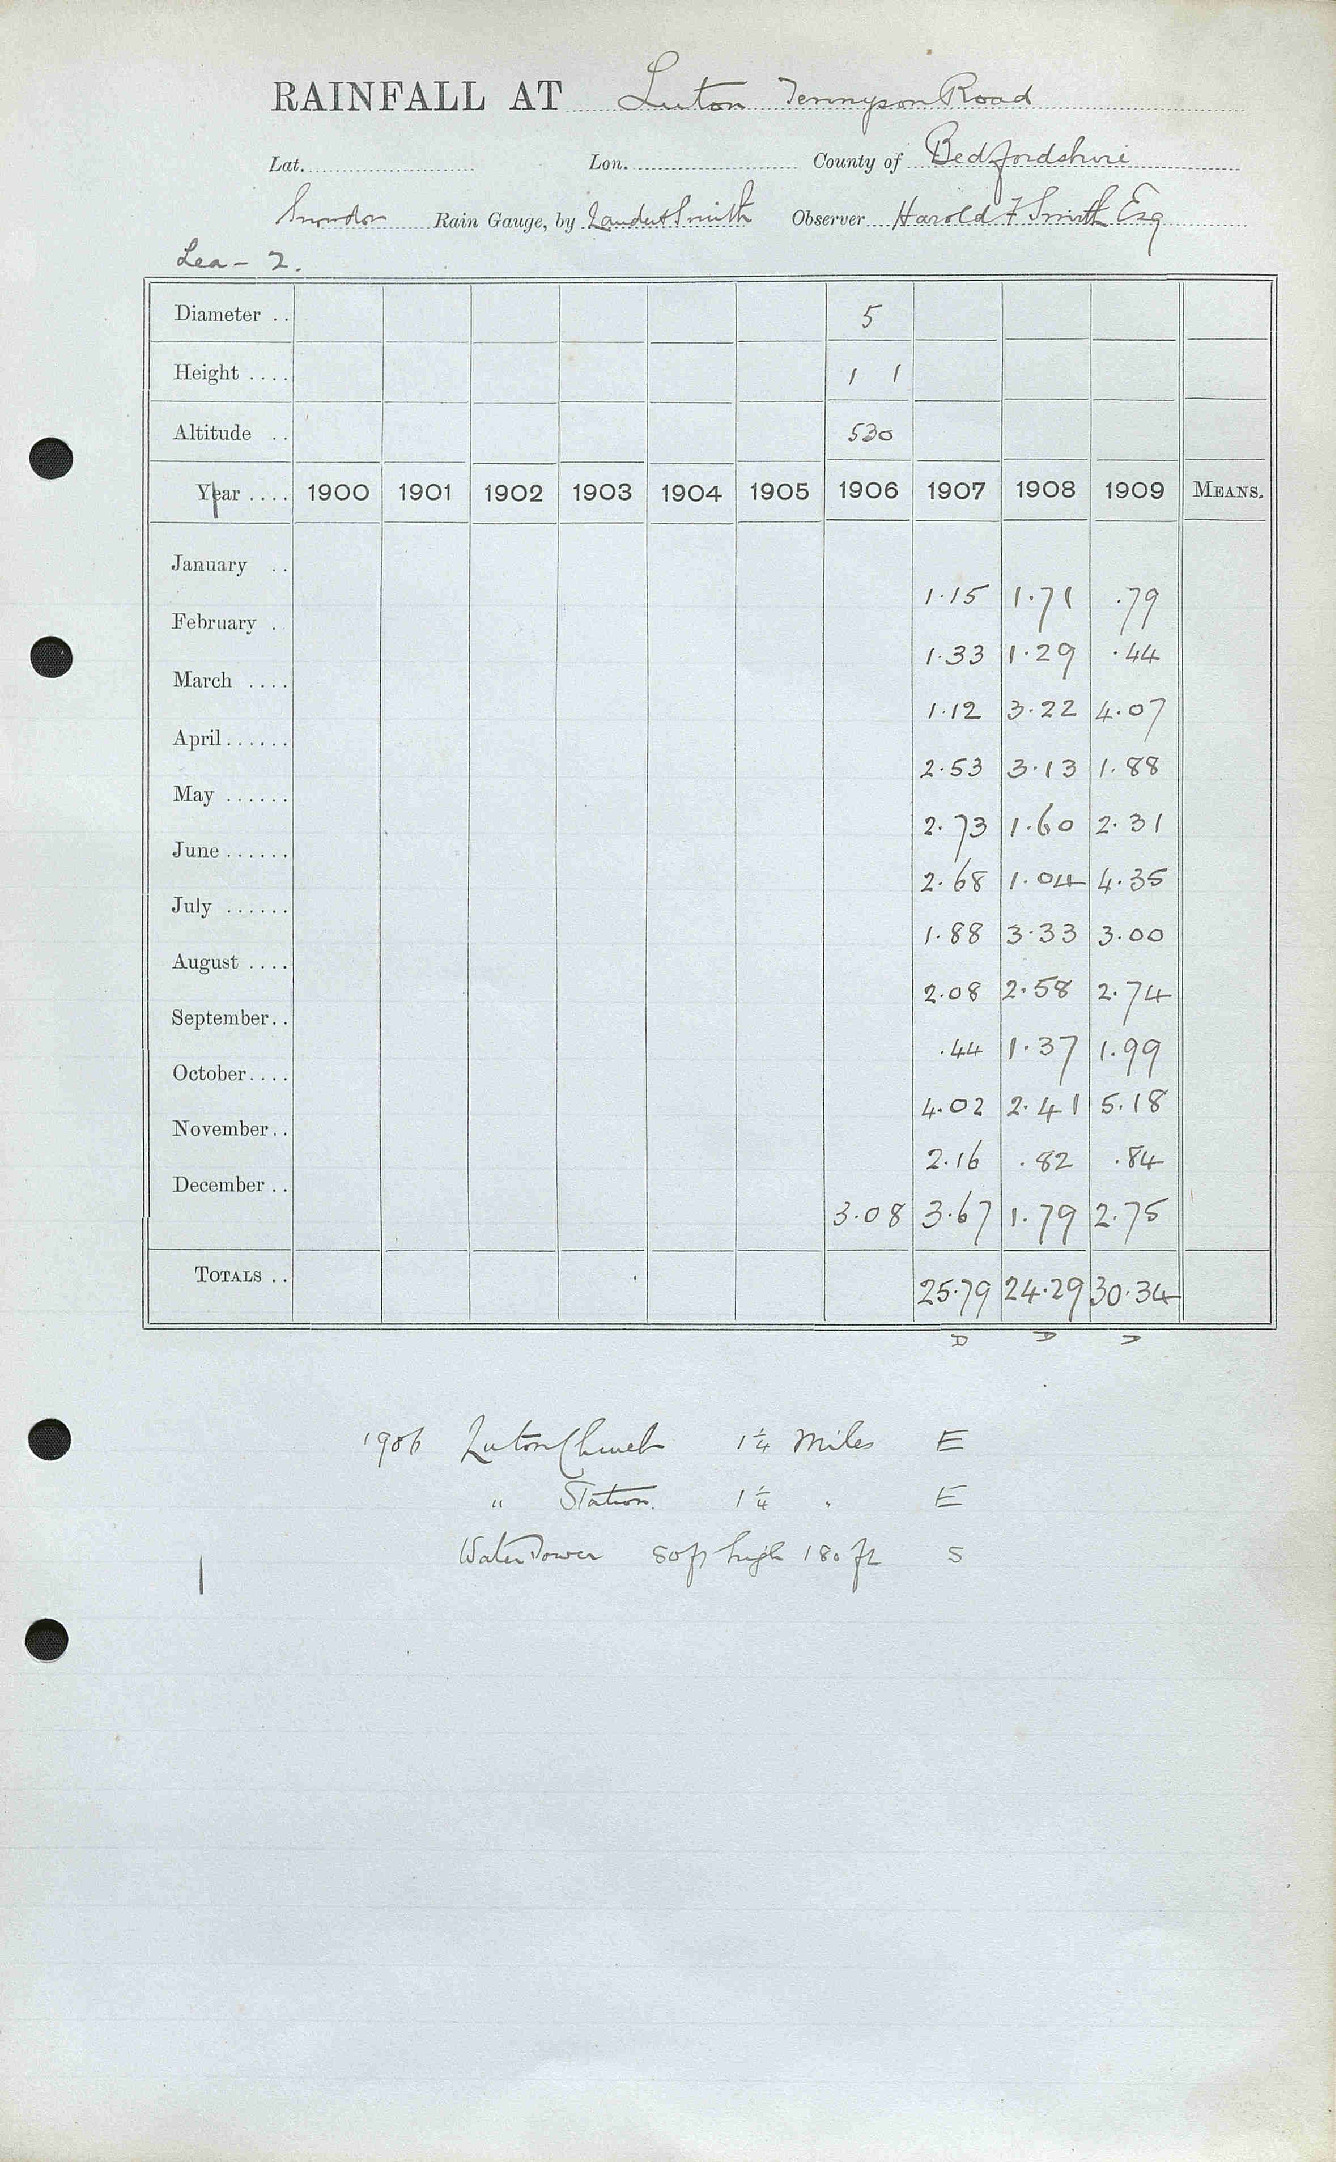 RAINFALL AT Luton Tennyson Road
Lat. Lon. County of Bedfordshire
Snowdon Rain Gauge, by Lander & Smith Observer Harold F Smith Esq
Lea - 2.
Diameter .. 5
Height .... 1 1
Altitude .. 530
Year .... 1900 1901 1902 1903 1904 1905 1906 1907 1908 1909 MEANS.
January .. 1.15 1.71 .79
February . 1.33 1.29 .44
March .... 1.12 3.22 4.07
April...... 2.53 3.13 1.88
May ...... 2.73 1.60 2.31
June ...... 2.68 1.04 4.35
July ...... 1.88 3.33 3.00
August .... 2.08 2.58 2.74
September.. .44 1.37 1.99
October.... 4.02 2.41 5.18
November.. 2.16 .82 .84
December .. 3.08 3.67 1.79 2.75
TOTALS .. 25.79 24.29 30.34
D D D
1906 Luton Church 1¼ Miles E
" Station. 1¼ " E
Water Tower 80ft high 180 ft S